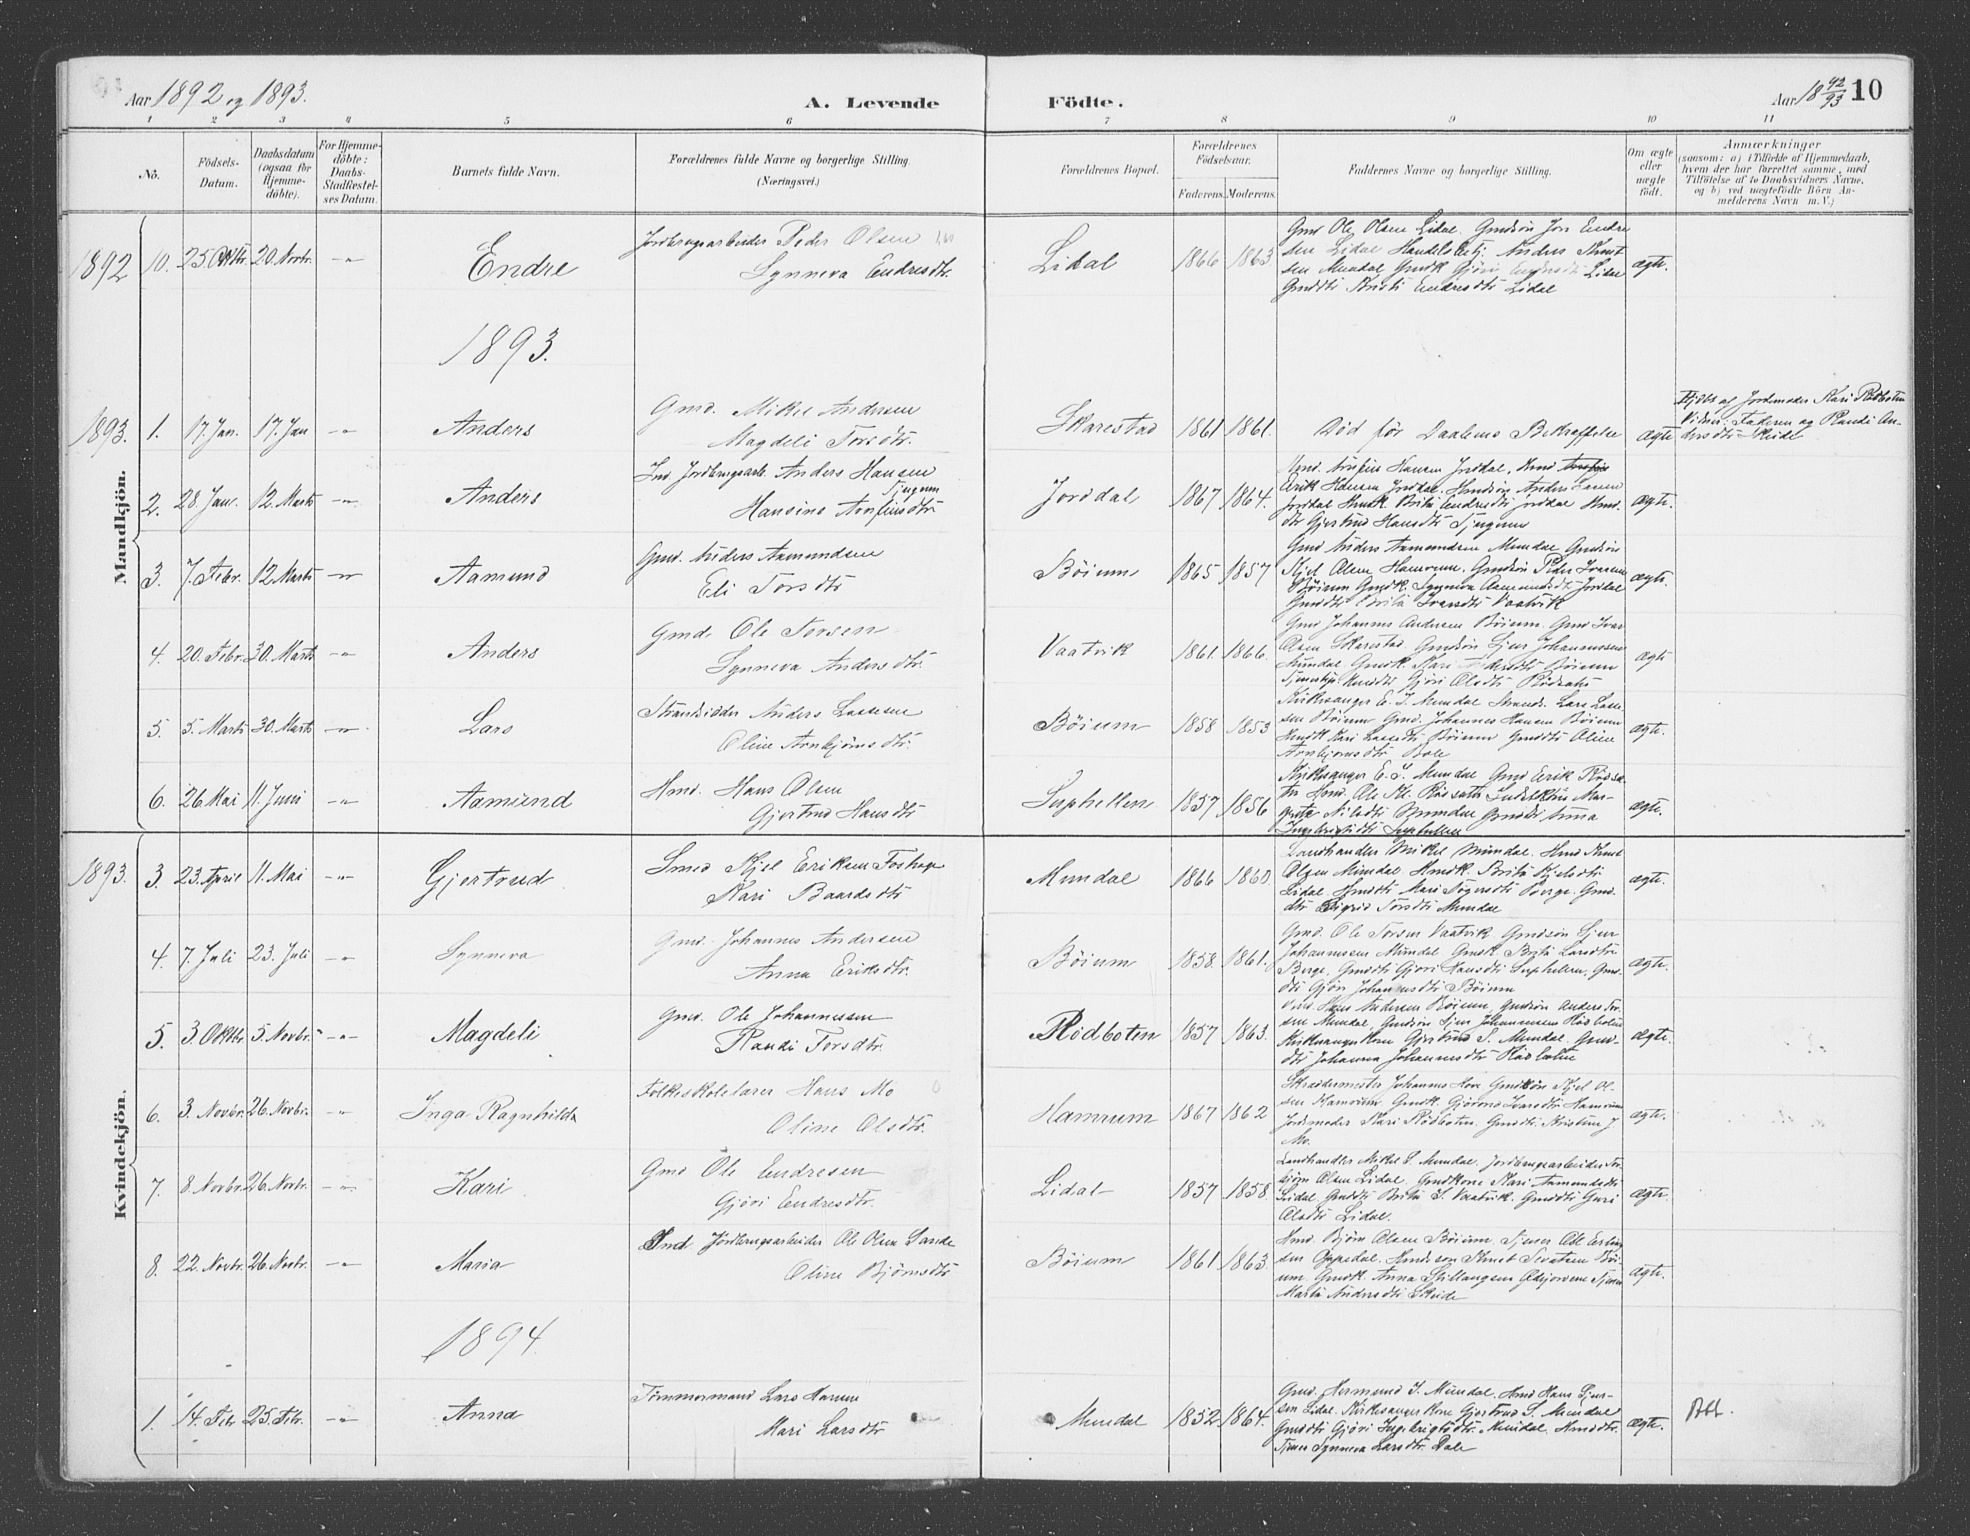 Aar 1892 og 1893.
A. Levende Födte.
Aar 18 92/93 10
1 2 3 4 5 6 7 8 9 10 11
No.
Födsels-Datum.
Daabsdatum (ogsaa for Hjemmedöbte).
For Hjemmedöbte: Daabs-Stadfæstelses Datum.
Barnets fulde Navn.
Forældrenes fulde Navne og borgerlige Stilling. (Næringsvei.)
Forældrenes Bopæl.
Forældrenes Födselsaar.
Faderens. Moderens.
Faddernes Navne og borgerlige Stilling.
Om ægte eller uægte födt.
Anmærkninger (saasom: a) i Tilfælde af Hjemmedaab, hvem der har forrettet samme, med Tilföielse af to Daabsvidners Navne, og b) ved uægtefödte Börn Anmelderens Navn m. V.)
1892 10. 25 Oktbr. 20. Novbr. -"- Endre
Jordbrugsarbeider Peder Olsen
Synneva Endresdtr.
Lidal 1866 1863
Gmd Ole Olsen Lidal. Gmdsön Jon Endre
sen Lidal Handelsbetj. Anders Knut
sen Mundal Gmdk Gjöri Lidal
Gmddtr Kristi Endresdtr Lidal
ægte.
1893.
Mandkjön.
1893. 1. 17. Jan. 17. Jan -"- Anders
Gmd. Mikel Andersen
Magdeli Torsdtr.
Skarestad 1861 1861.
Död för Daabens Bekræftelse
ægte
Hjdbt af Jordmoder Kari Rödboten
Vidner: Faderen og Randi An-
dersdtr Skeide
2. 28. Janr. 12. Marts -"- Anders
Ind. Jordbrugsarb. Anders Hansen
Tjugum
Hansine Arnfinsdtr
Jordal 1867 1864.
Hmd. Arnfin Hansen Jordal. Hmd
Erik Hansen Jordal. Hmdsön Anders Lassen
Jordal Hmdk. Brita Endresdtr Jordal Hmd.
dtr Gjertrud Hansdtr Tjugum
ægte.
3. 7. Febr. 12. Marts -"- Aamund
Gmd. Anders Aamundsen
Eli Torsdtr
Böium 1865 1857
Gmd Anders Aamundsen Mundal Gmdsön
Kjel Olsen Hamrum. Gmdsön Peder Ivarsen
Böium Gmdk. Synneva Aamundsdtr Jordal
Gmddtr Brita Ivarsdtr Vaatvik
ægte.
4. 20. Febr. 30. Marts -"- Anders
Gmd. Ole Torsen
Synneva Andersdtr.
Vaatvik 1861. 1866.
Gmd Johannes Andersen Böium. Gmd Ivar
Olsen Skarestad Gmdsön Sjur Johannessen
Mundal. Gmdk. Kari Böium
Gjöri Olsdtr Rödsæte
ægte
5. 5. Marts 30. Marts -"- Lars
Strandsidder Anders Lassesen
Oline Arnbjörnsdtr.
Böium 1858 1853
Kirkesanger E. S. Mundal Strands. Lars Lasse
sen Böium Gmd. Johannes Hansen Böium
Hmdk Kari Lassedtr Böium Gmddtr Oline
Arnbjörnsdtr Bole
ægte.
6. 26 Mai 11. Juni -"- Aamund
Hmd. Hans Olsen
Gjertrud Hansdtr
Suphellen 1857 1856
Kirkesanger E. S. Mundal Gmd Erik Rödsæ-
ter Hmd. Ole Rödsæth Mar-
grete Nilsdtr Mundal Gmddtr Anna
Ingebrigtsdtr Suphellen
ægte.
Kvindekjön.
1893. 3. 23. April 11. Mai -"- Gjertrud
Smed Kjel Eriksen
Kari Baardsdtr
Mundal 1866 1860
Landhandler Mikel Mundal. Hmd Knut
Olsen Mundal. Hmdk. Brita Kjelsdtr
Lidal. Hmddtr Mari Berge. Gmd.
dtr Sigrid Torsdtr Mundal
ægte.
4. 7. Juli 23. Juli -"- Synneva
Gmd. Johannes Andersen
Anna Eriksdtr.
Böium 1858. 1861.
Gmd. Ole Torsen Vaatvik Gmdsön Sjur
Johannessen Mundal Gmdk Brita Larsdtr
Berge. Gmddtr Gjöri Hansdtr Suphellen. Gmd-
dtr Gjöri Johannesdtr Böium
ægte.
5. 3 Oktbr. 5. Novbr. -"- Magdeli
Gmd. Ole Johannessen
Randi Torsdtr.
Rödboten 1857 1863.
Andersen Böium, Gmdsön Anders Tor
sen Mundal, Gmdsön Sjur Johannessen Rödboten
Kirkesangerkone Gjertrud S. Mundal. Gmd-
dtr Johanna Johannesdtr Rödboten
ægte.
6. 3. Novbr. 26. Novbr. -"- Inga Ragnhilda
Folkeskolelærer Hans Mo
Oline Olsdtr.
Hamrum 1867 1862
Skræddermester Johannes Gmdsön Kjel Ol-
sen Hamrum Gmdk. Ivarsdtr Hamrum
Jordmoder Kari Rödboten. Gmddtr. Kristine J.
Mo.
ægte.
7. 8 Novbr. 26. Novbr. -"- Kari
Gmd Ole Endresen
Gjöri Endresdtr.
Lidal 1857 1858
Landhandler Mikel S. Mundal. Jordbrugsarbeider Tor-
björn Olsen Lidal. Gmdkone Kari Aamundsdtr
Lidal. Gmddtr Brita S. Vaatvik. Gmddtr Guri
Olsdtr Lidal.
ægte.
8. 22. Novbr. 26. Novbr. -"- Maria
Ind. Jordbrugsarbeider Ole Olsen Sande
Oline Björnsdtr
Böium 1861 1863
Hmd. Björn Olsen Böium. Tjener Erling
sen Oppedal. Hmdsön Knut Böi
um. Gmdk. Anna Tjener
Marta Andersdtr Skeide
ægte.
1894.
1. 14. Febr 25. Febr. -"- Anna
Tömmermand Lars Hansen
Mari Larsdtr
Mundal 1852 1864.
Gmd. Hermund I. Mundal. Hmd Hans Sjur-
sen Lidal. Kirkesangerkone Gjertrud S. Mundal
Gmddtr Gjöri Ingebrigtsdtr. Mundal. Hmddtr.
Tjener Synneva Larsdtr. Dale
ægte.
Att.